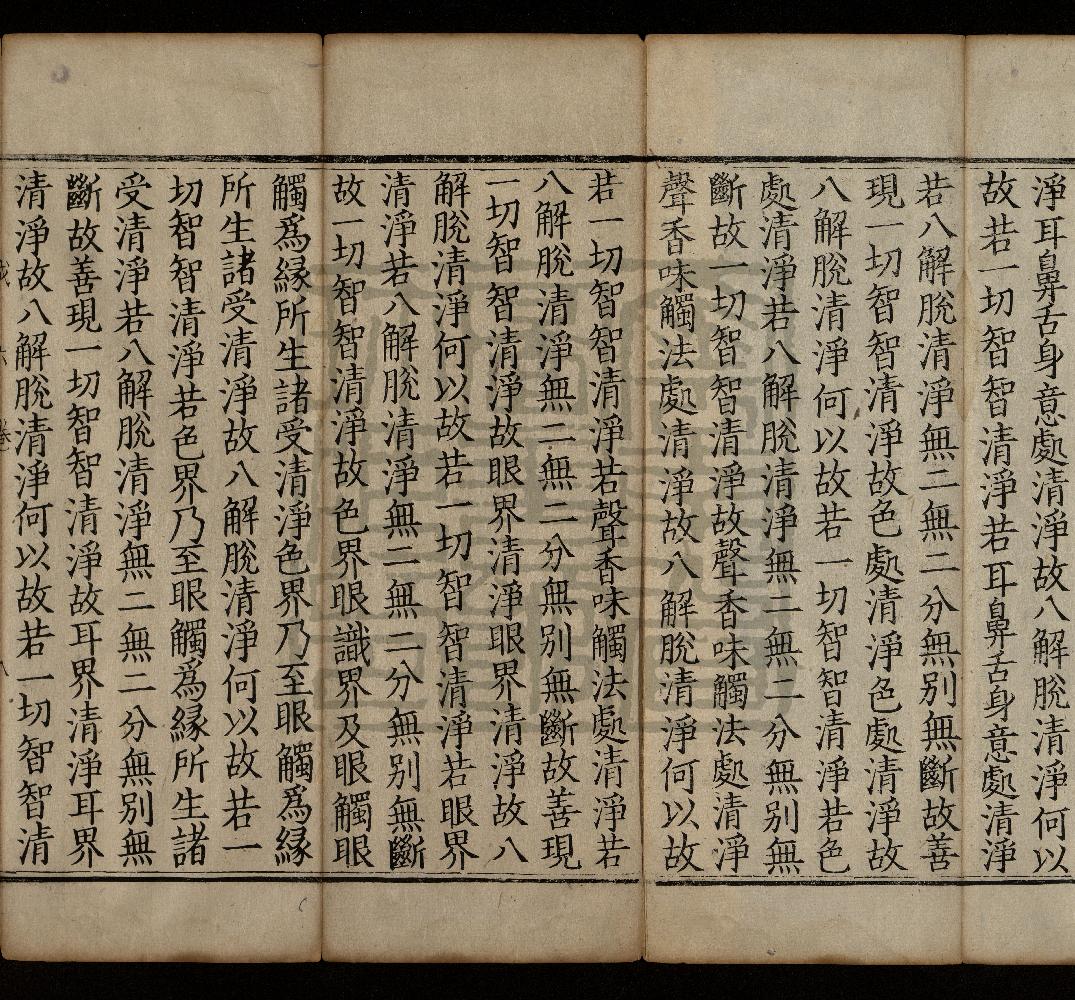 淨耳鼻舌身意處清淨故八解脫清淨何以
故若一切智智清淨若耳鼻舌身意處清淨
若八解脫清淨無二無二分無別無斷故善
現一切智智清淨故色處清淨色處清淨故
八解脫清淨何以故若一切智智清淨若色
處清淨若八解脫清淨無二無二分無別無
斷故一切智智清淨故聲香味觸法處清淨
聲香味觸法處清淨故八解脫清淨何以故
若一切智智清淨若聲香味觸法處清淨若
八解脫清淨無二無二分無別無斷故善現
一切智智清淨故眼界清淨眼界清淨故八
解脫清淨何以故若一切智智清淨若眼界
清淨若八解脫清淨無二無二分無別無斷
故一切智智清淨故色界眼識界及眼觸眼
觸爲緣所生諸受清淨色界乃至眼觸爲緣
所生諸受清淨故八解脫清淨何以故若一
切智智清淨若色界乃至眼觸爲緣所生諸
受清淨若八解脫清淨無二無二分無別無
斷故善現一切智智清淨故耳界清淨耳界
清淨故八解脫清淨何以故若一切智智清